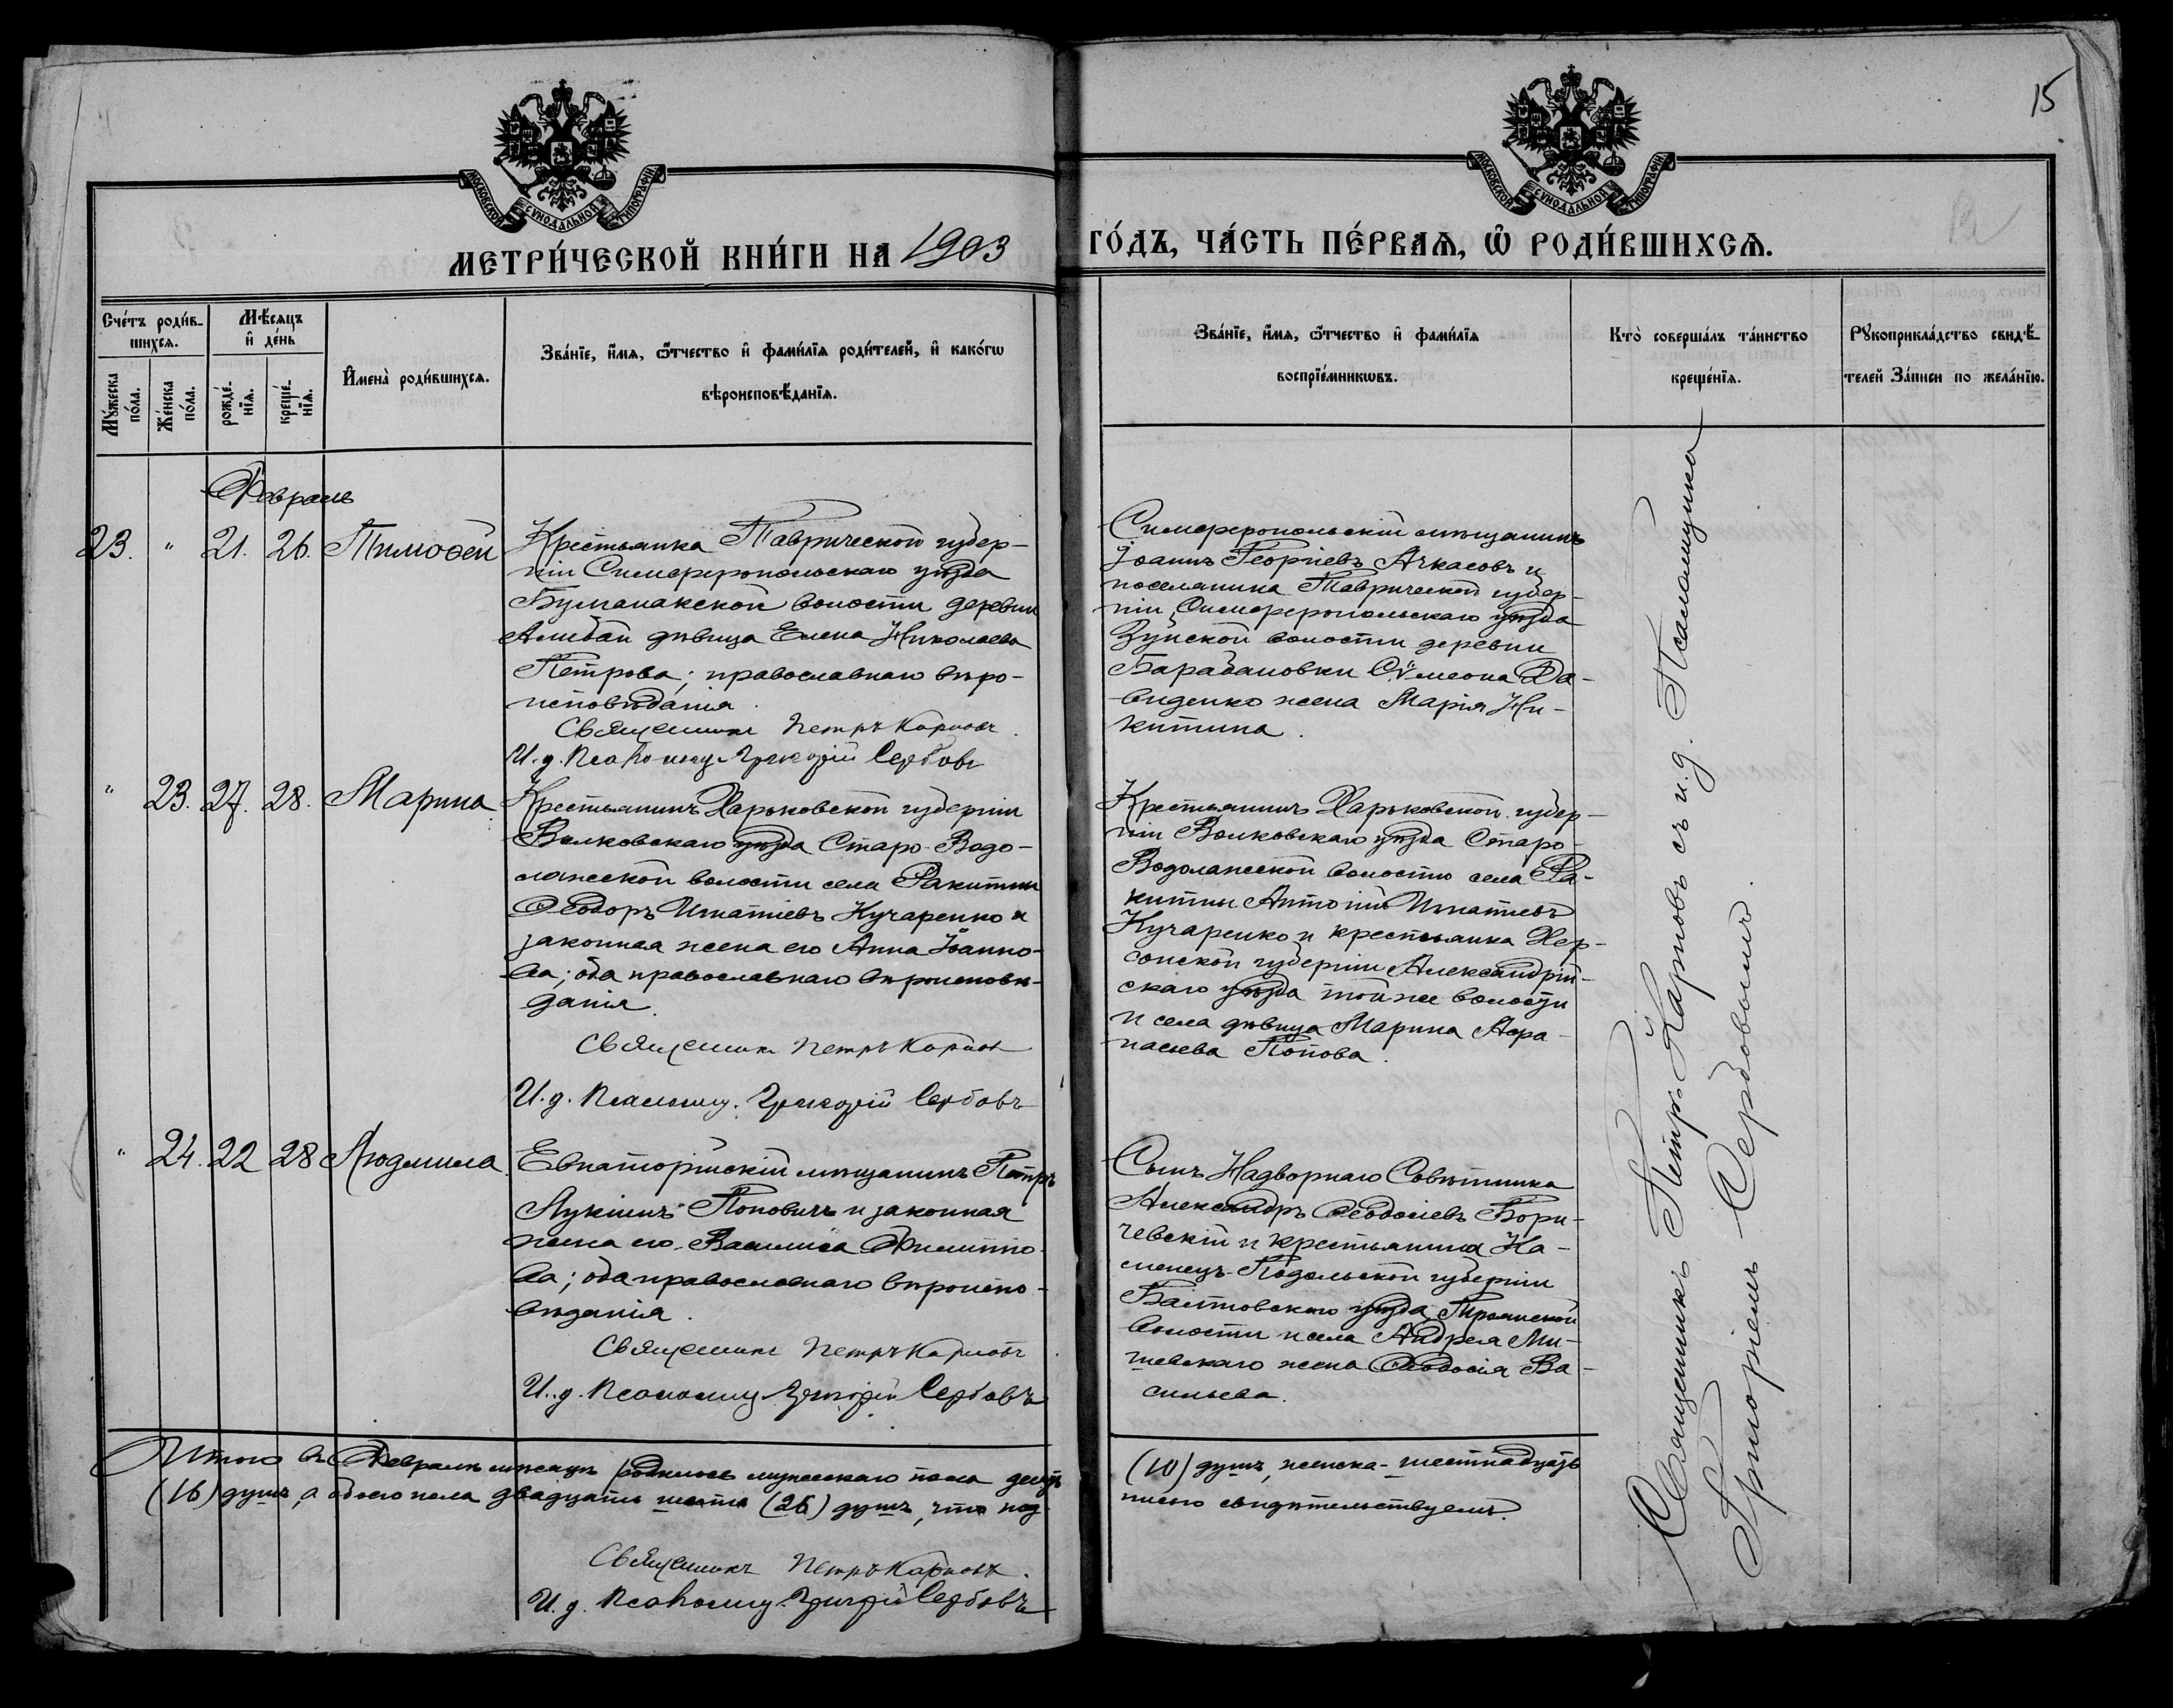 15
МОСКОВСКОЙ СѴНОДАЛЬНОЙ ТИПОГРАФІИ
МОСКОВСКОЙ СѴНОДАЛЬНОЙ ТИПОГРАФІИ
МЕТРИ́ЧЕСКОЙ КНИ́ГИ НА 1903
ГО́ДЪ, ЧА́СТЬ ПЕ́РВАѦ, Ѽ РОДИ́ВШИХСѦ.
Сче́тъ роди́в-
шихсѧ.
Мꙋ́жеска
по́ла.
Же́нска
по́ла.
Мѣ́сѧцъ
и҆ де́нь
рожде́-
нїѧ.
креще́-
нїѧ.
И҆мена̀ роди́вшихсѧ.
Зва́нїе, и҆́мѧ, ѻ҆́тчество и҆ фами́лїѧ роди́телей, и҆ како́гѡ
вѣроисповѣ́данїѧ.
Зва́нїе, и҆́мѧ, ѻ҆́тчество и҆ фами́лїѧ
воспрїе́мникѡвъ.
Кто̀ соверша́лъ та́инство
креще́нїѧ.
Рꙋкоприкла́дство свидѣ́-
телей За́писи по жела́нїю.
Февраль
23. " 21. 26. Тимоѳей
Крестьянка Таврической губер-
ніи Симферопольскаго уѣзда
Булганакской волости деревни
Алибай дѣвица Елена Николаева
Петрова; православнаго вѣро-
исповѣданія.
Священникъ Петръ Карповъ.
И. д. Псаломщ. Григорій Сербовъ
Симферопольскій мѣщанинъ
Іоаннъ Георгіевъ Ачкасовъ и
поселянина Таврической губер-
ніи, Симферопольскаго уѣзда
Зуйской волости деревни
Барабановки Сѵмеона Да-
виденко жена Марія Ни-
китина.
" 23. 27. 28. Марина
Крестьянинъ Харьковской губерніи
Валковскаго уѣзда Старо-Водо-
лажской волости села Ракитны
Ѳеодоръ Игнатіевъ Кучаренко и
законная жена его Анна Іоанно-
ва; оба православнаго вѣроисповѣ-
данія.
Священникъ Петръ Карповъ
И. д. Псаломщ. Григорій Сербовъ
Крестьянинъ Харьковской губер-
ніи Валковскаго уѣзда Старо-
Водолажской волости села Ра-
китны Антоній Игнатіевъ
Кучаренко и крестьянка Хер-
сонской губерніи Александрій-
скаго уѣзда той же волости
и села дѣвица Марина Аѳа-
насьева Попова.
" 24. 22 28 Людмила
Евпаторійскій мѣщанинъ Петръ
Лукіинъ Поповичъ и законная
жена его Васлиса Филиппо-
ва; оба православнаго вѣроиспо-
вѣданія.
Священникъ Петръ Карповъ
И. д. Псаломщ. Григорій Сербовъ
Сынъ Надворнаго Совѣтника
Александръ Ѳеодосіевъ Бори-
чевскій и крестьянина Ка-
менецъ-Подольской губерніи
Балтовскаго уѣзда,
волости и села Андрея Ми-
шевскаго жена Ѳеодосія Ва-
сильева.
Священникъ Петръ Карповъ съ и. д. Псаломщика
Григоріемъ Сербовымъ.
Итого въ Февралѣ мѣсяцѣ родилось мужескаго пола десять (10) душъ, женска-шестнадцать
(16) душъ, а обоего пола двадцать шесть (26) душъ, что под-
писью свидѣтельствуемъ.
Священникъ Петръ Карповъ.
И. д. Псаломщ. Григорій Сербовъ